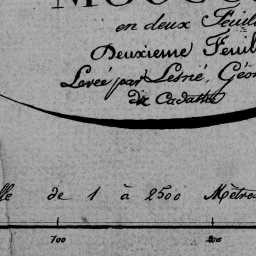 en deux Feuil
Deuxieme Feuil
Levée par Lesné, Géo
du Cadastre
lle de 1 à 2500 Mètres
700